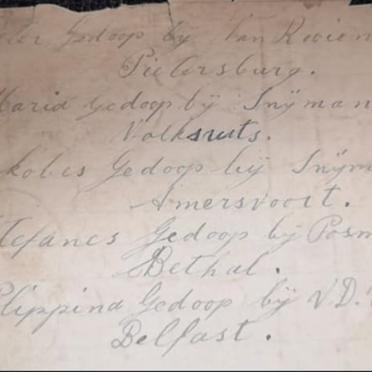 Gedoop by Van Rooien
Pietersburg.
Maria Gedoop bÿ Snÿman
Volksruts.
kobes Gedoop bÿ Snÿm
Amersvoort.
tefanes Gedoop by Posm
Bethal.
lippina Gedoop bÿ V.D.
Belfast.